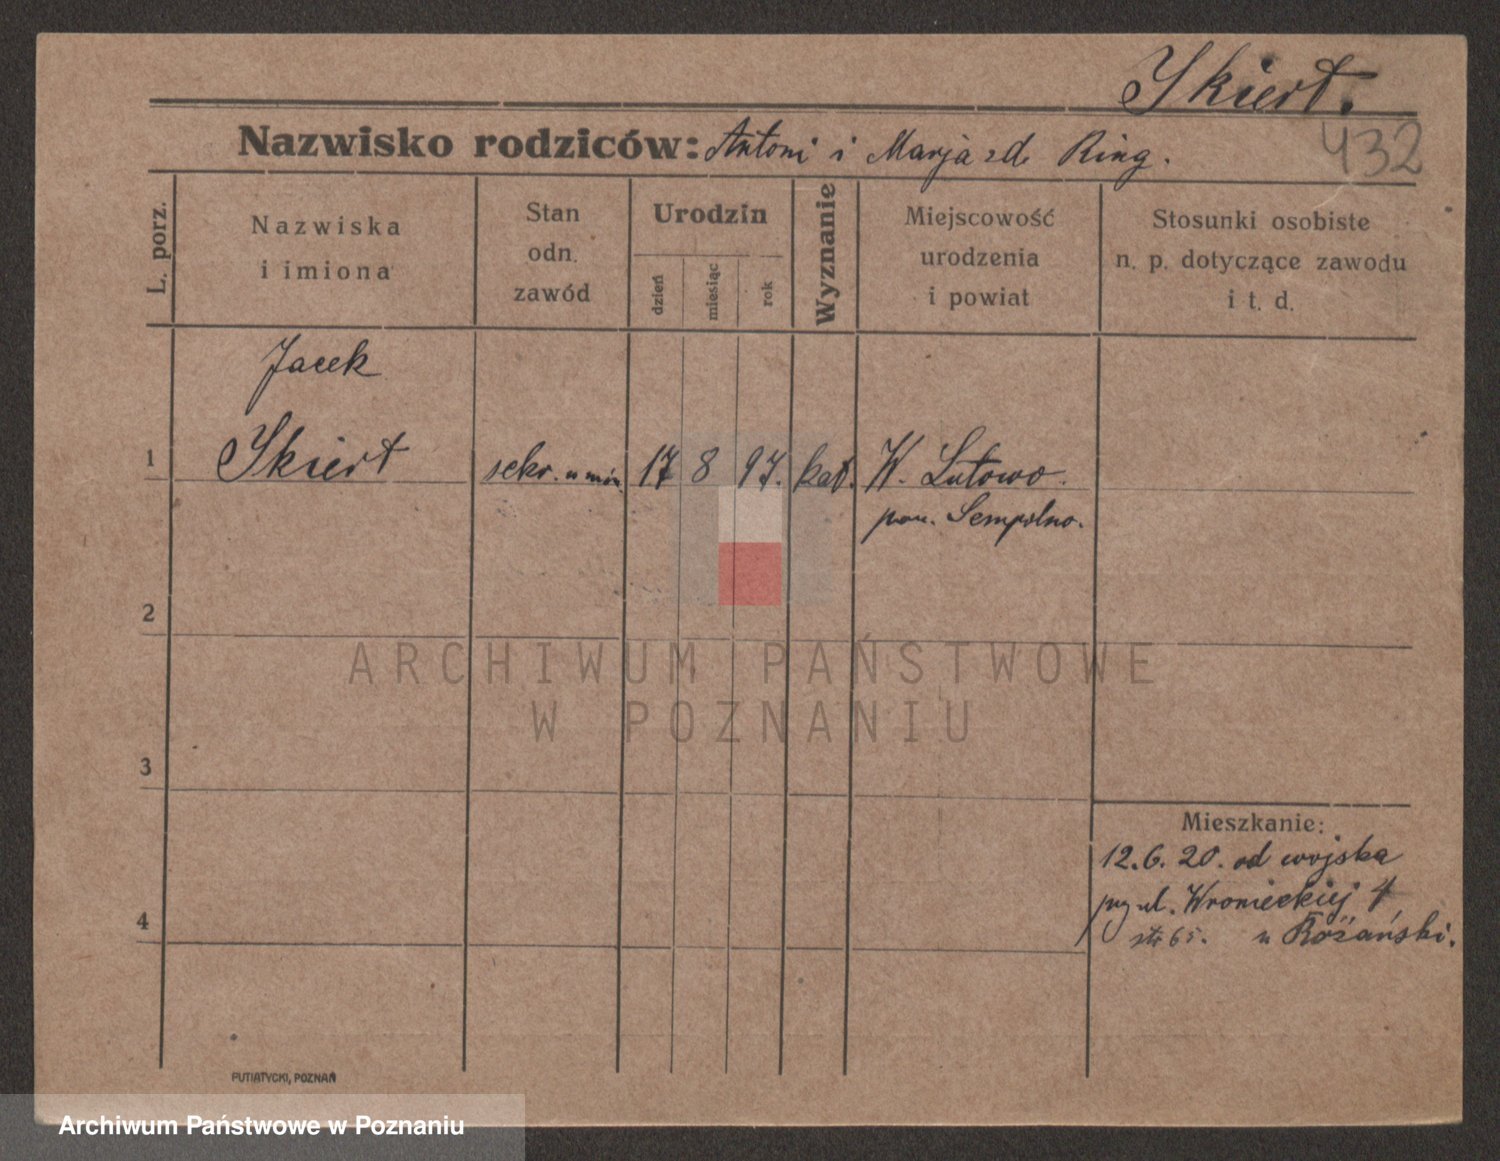 Skiert.
432
Nazwisko rodziców: Antoni i Marja zd. Ring.
L. porz.
Nazwiska
i imiona
Stan
odn.
zawód
Urodzin
dzień
miesiąc
rok
Wyznanie
Miejscowość
urodzenia
i powiat
Stosunki osobiste
n. p. dotyczące zawodu
i t. d.
Jacek
1 Skiert sekr. 17 8 97. kat. W. Lutowo.
pow. Sempolno.
2
ARCHIWUM PAŃSTWOWE
W POZNANIU
3
Mieszkanie:
12.6.20. od wojska
4 ul. Wronieckiej 4
str 65. u Różański.
PUTIATYCKI, POZNAŃ
Archiwum Państwowe w Poznaniu